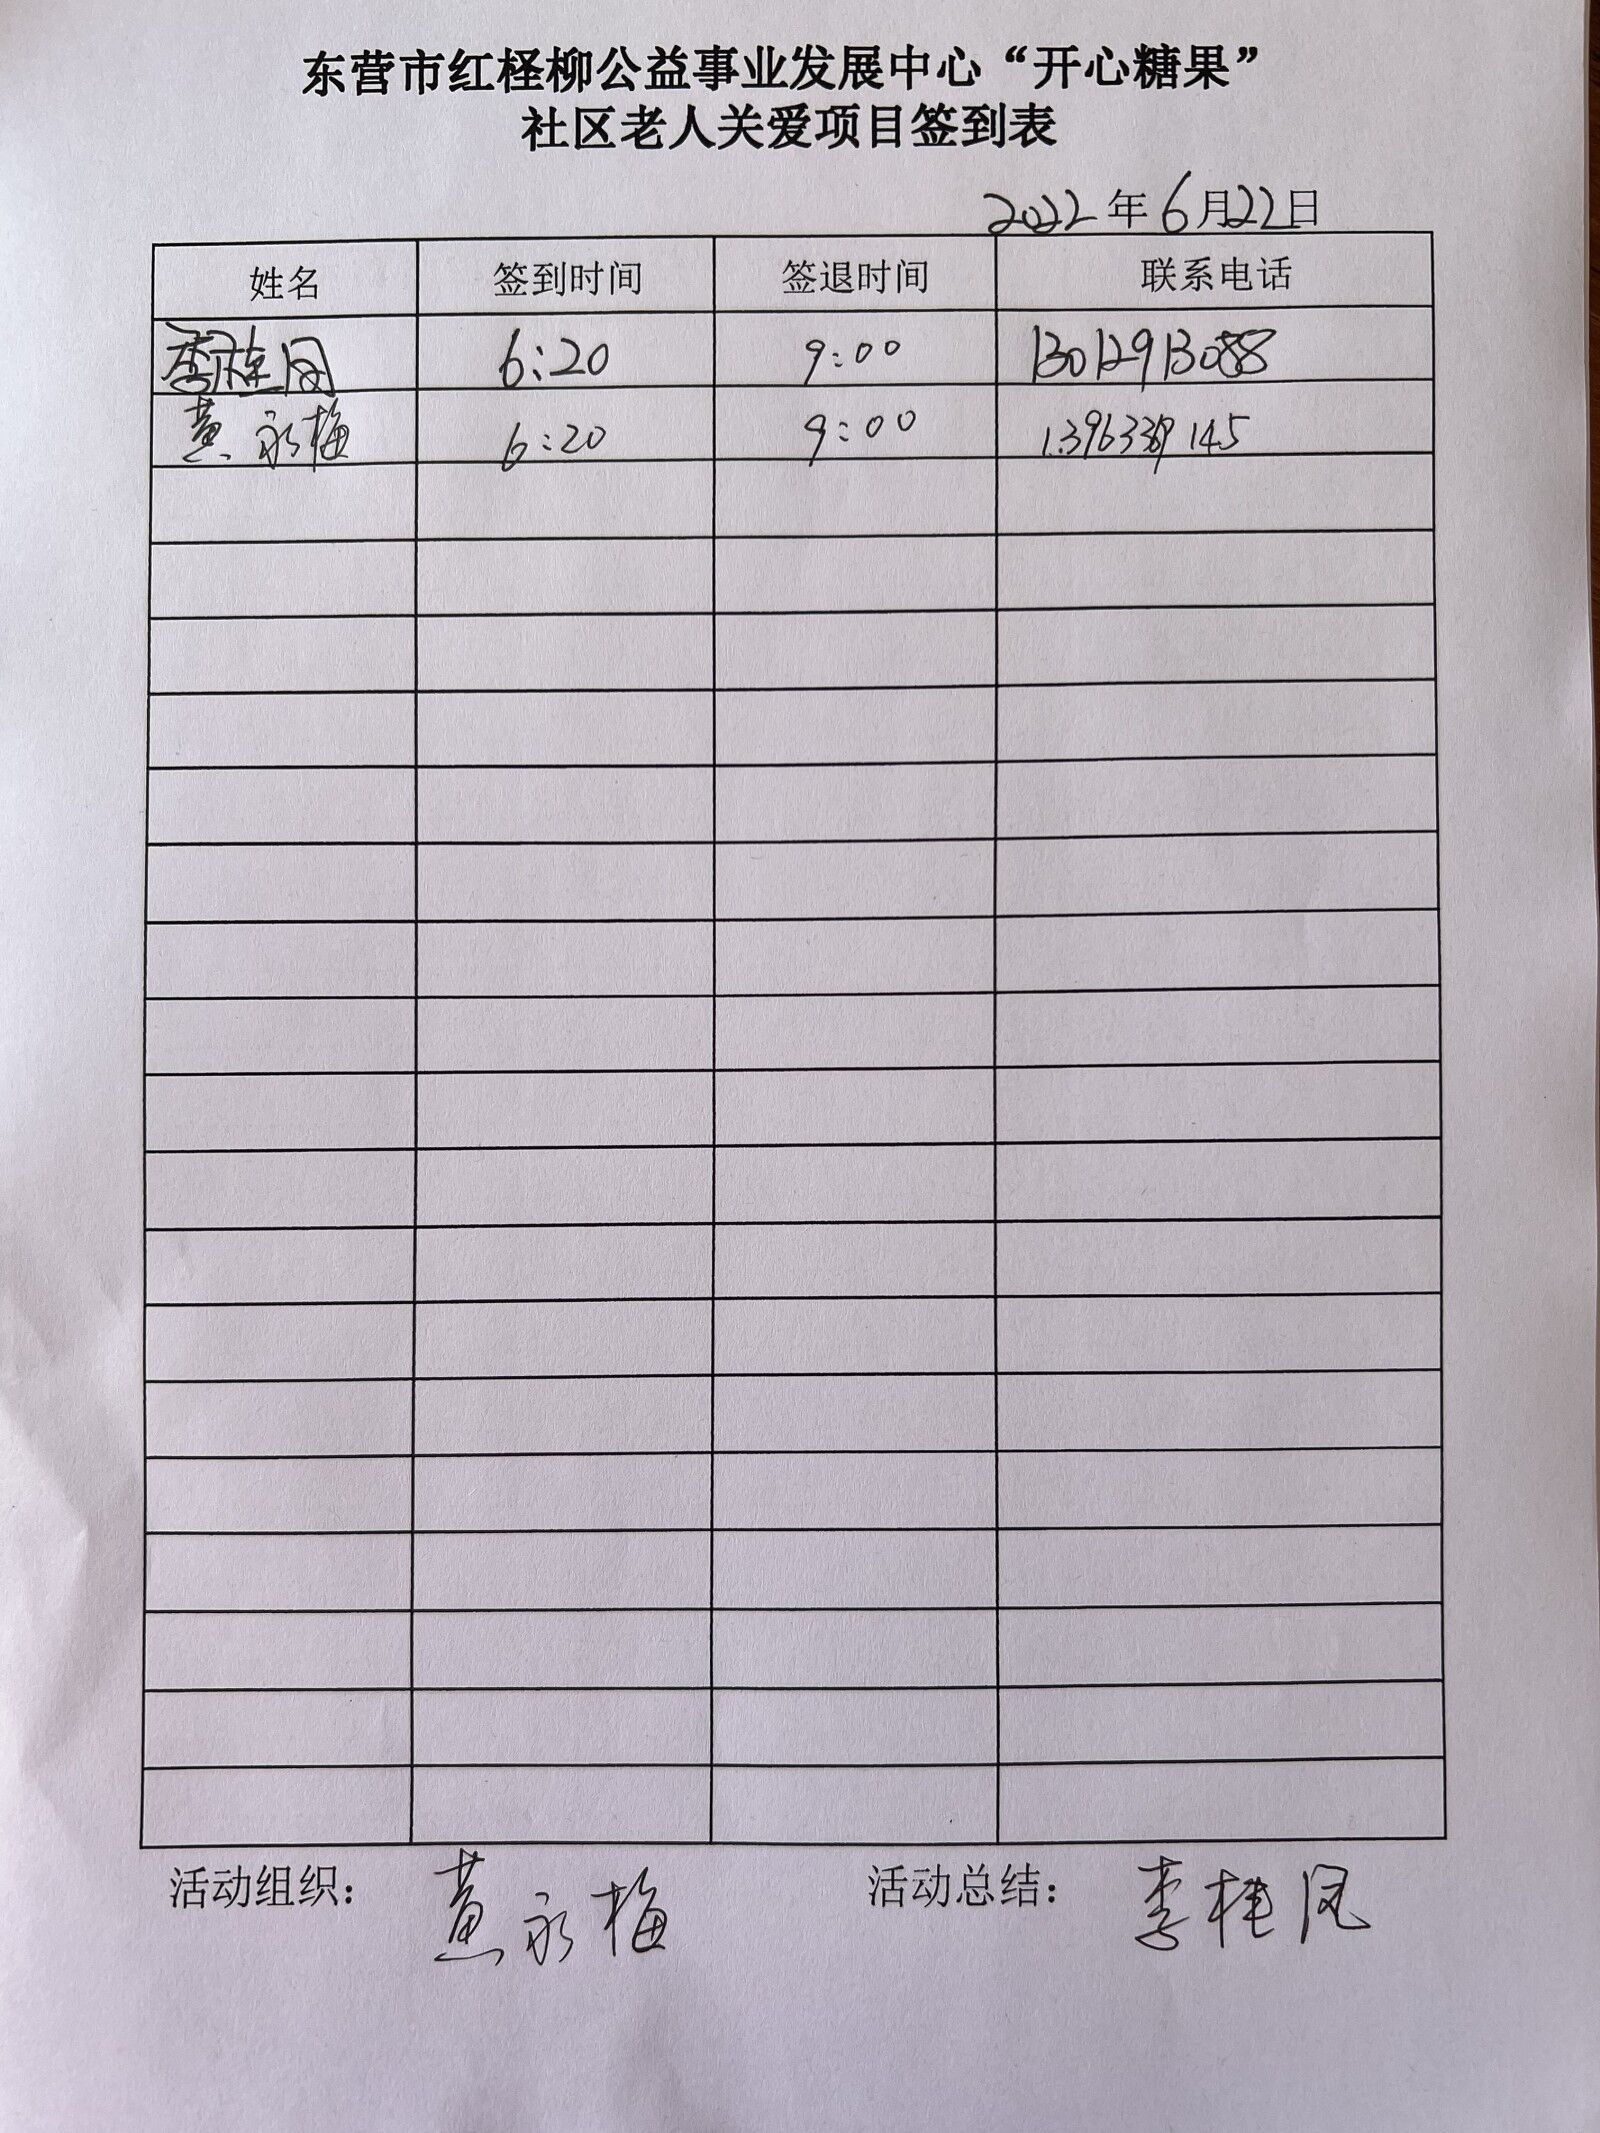 东营市红柽柳公益事业发展中心“开心糖果”
社区老人关爱项目签到表
2022年6月22日
姓名 签到时间 签退时间 联系电话
李桂凤 6:20 9:00 13012913088
黄永梅 6:20 9:00
活动组织：黄永梅 活动总结：李桂凤